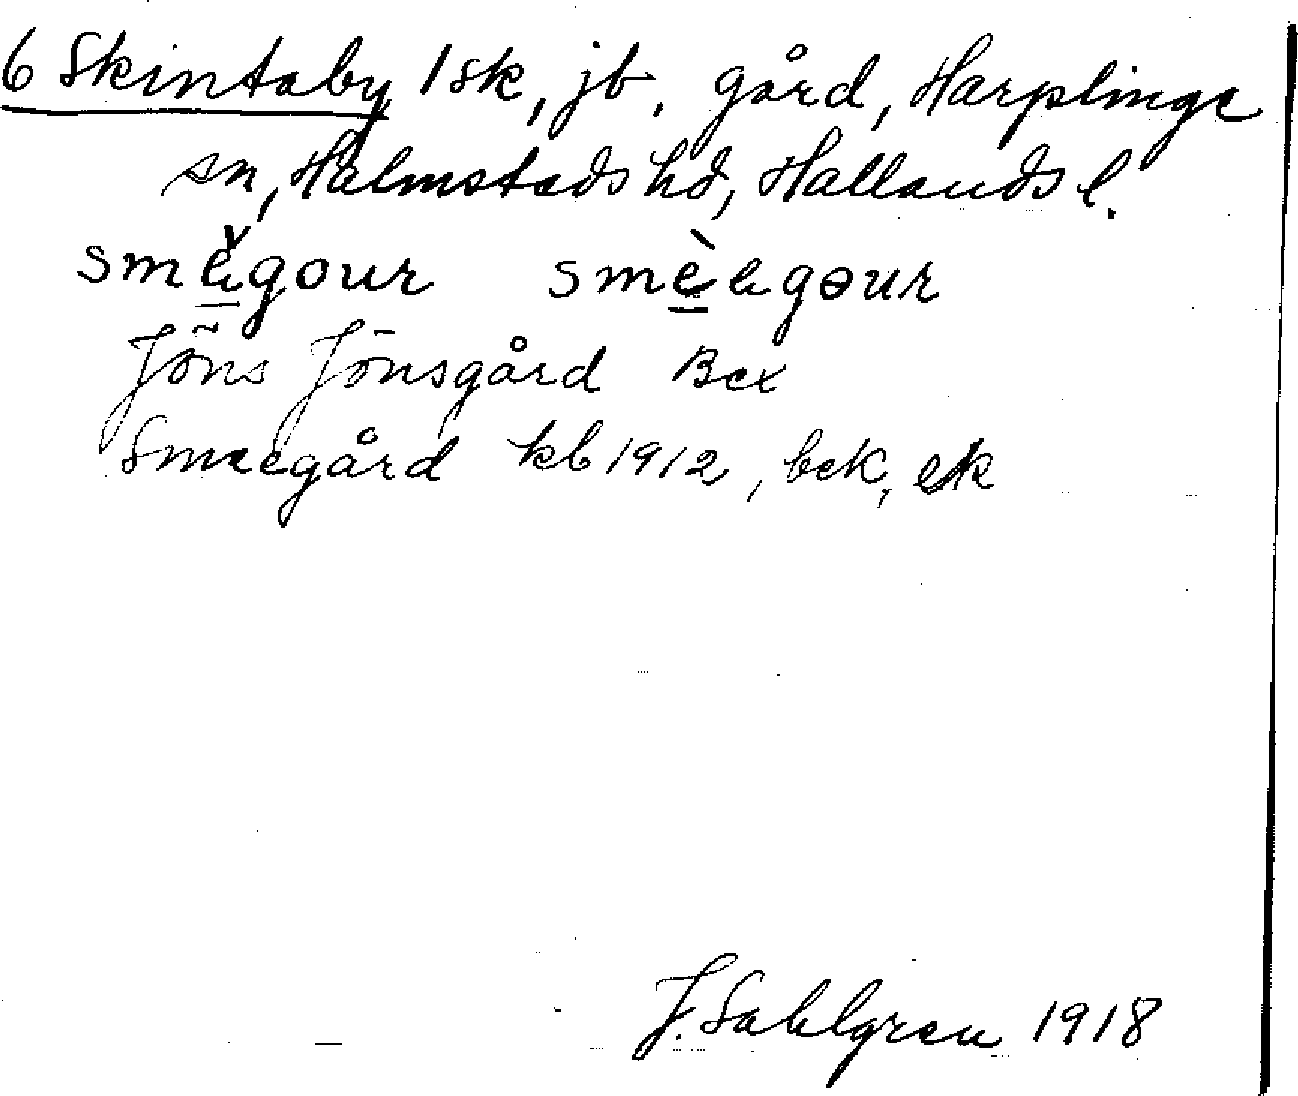 6 Skintaby 1 sk, jb. gård, Harplinge
sn, Halmstads hd, Hallands l.
smègour smèagour
Jöns Jönsgård Bex
Smeegård kb 1912, bek, ek
J. Sahlgren 1918